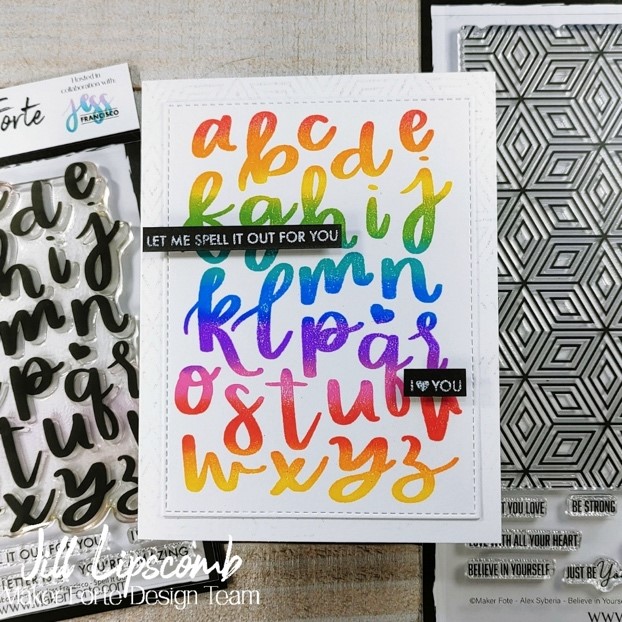 Hosted in
collaboration with:
Forte
jess
FRANCISCO
a b c d e
f g h i j
LET ME SPELL IT OUT FOR YOU
k l m n
o p q r
I ♥ YOU
s t u v
w x y z
d e
h i j
m n
p q r
t u
x y z
IT OUT FOR YOU
AMAZING
YOU LOVE
BE STRONG
LOVE WITH ALL YOUR HEART
BELIEVE IN YOURSELF
JUST BE You
©Maker Fote - Alex Syberia - Believe in Yours
WWW
Jill Lipscomb
Maker Forte Design Team